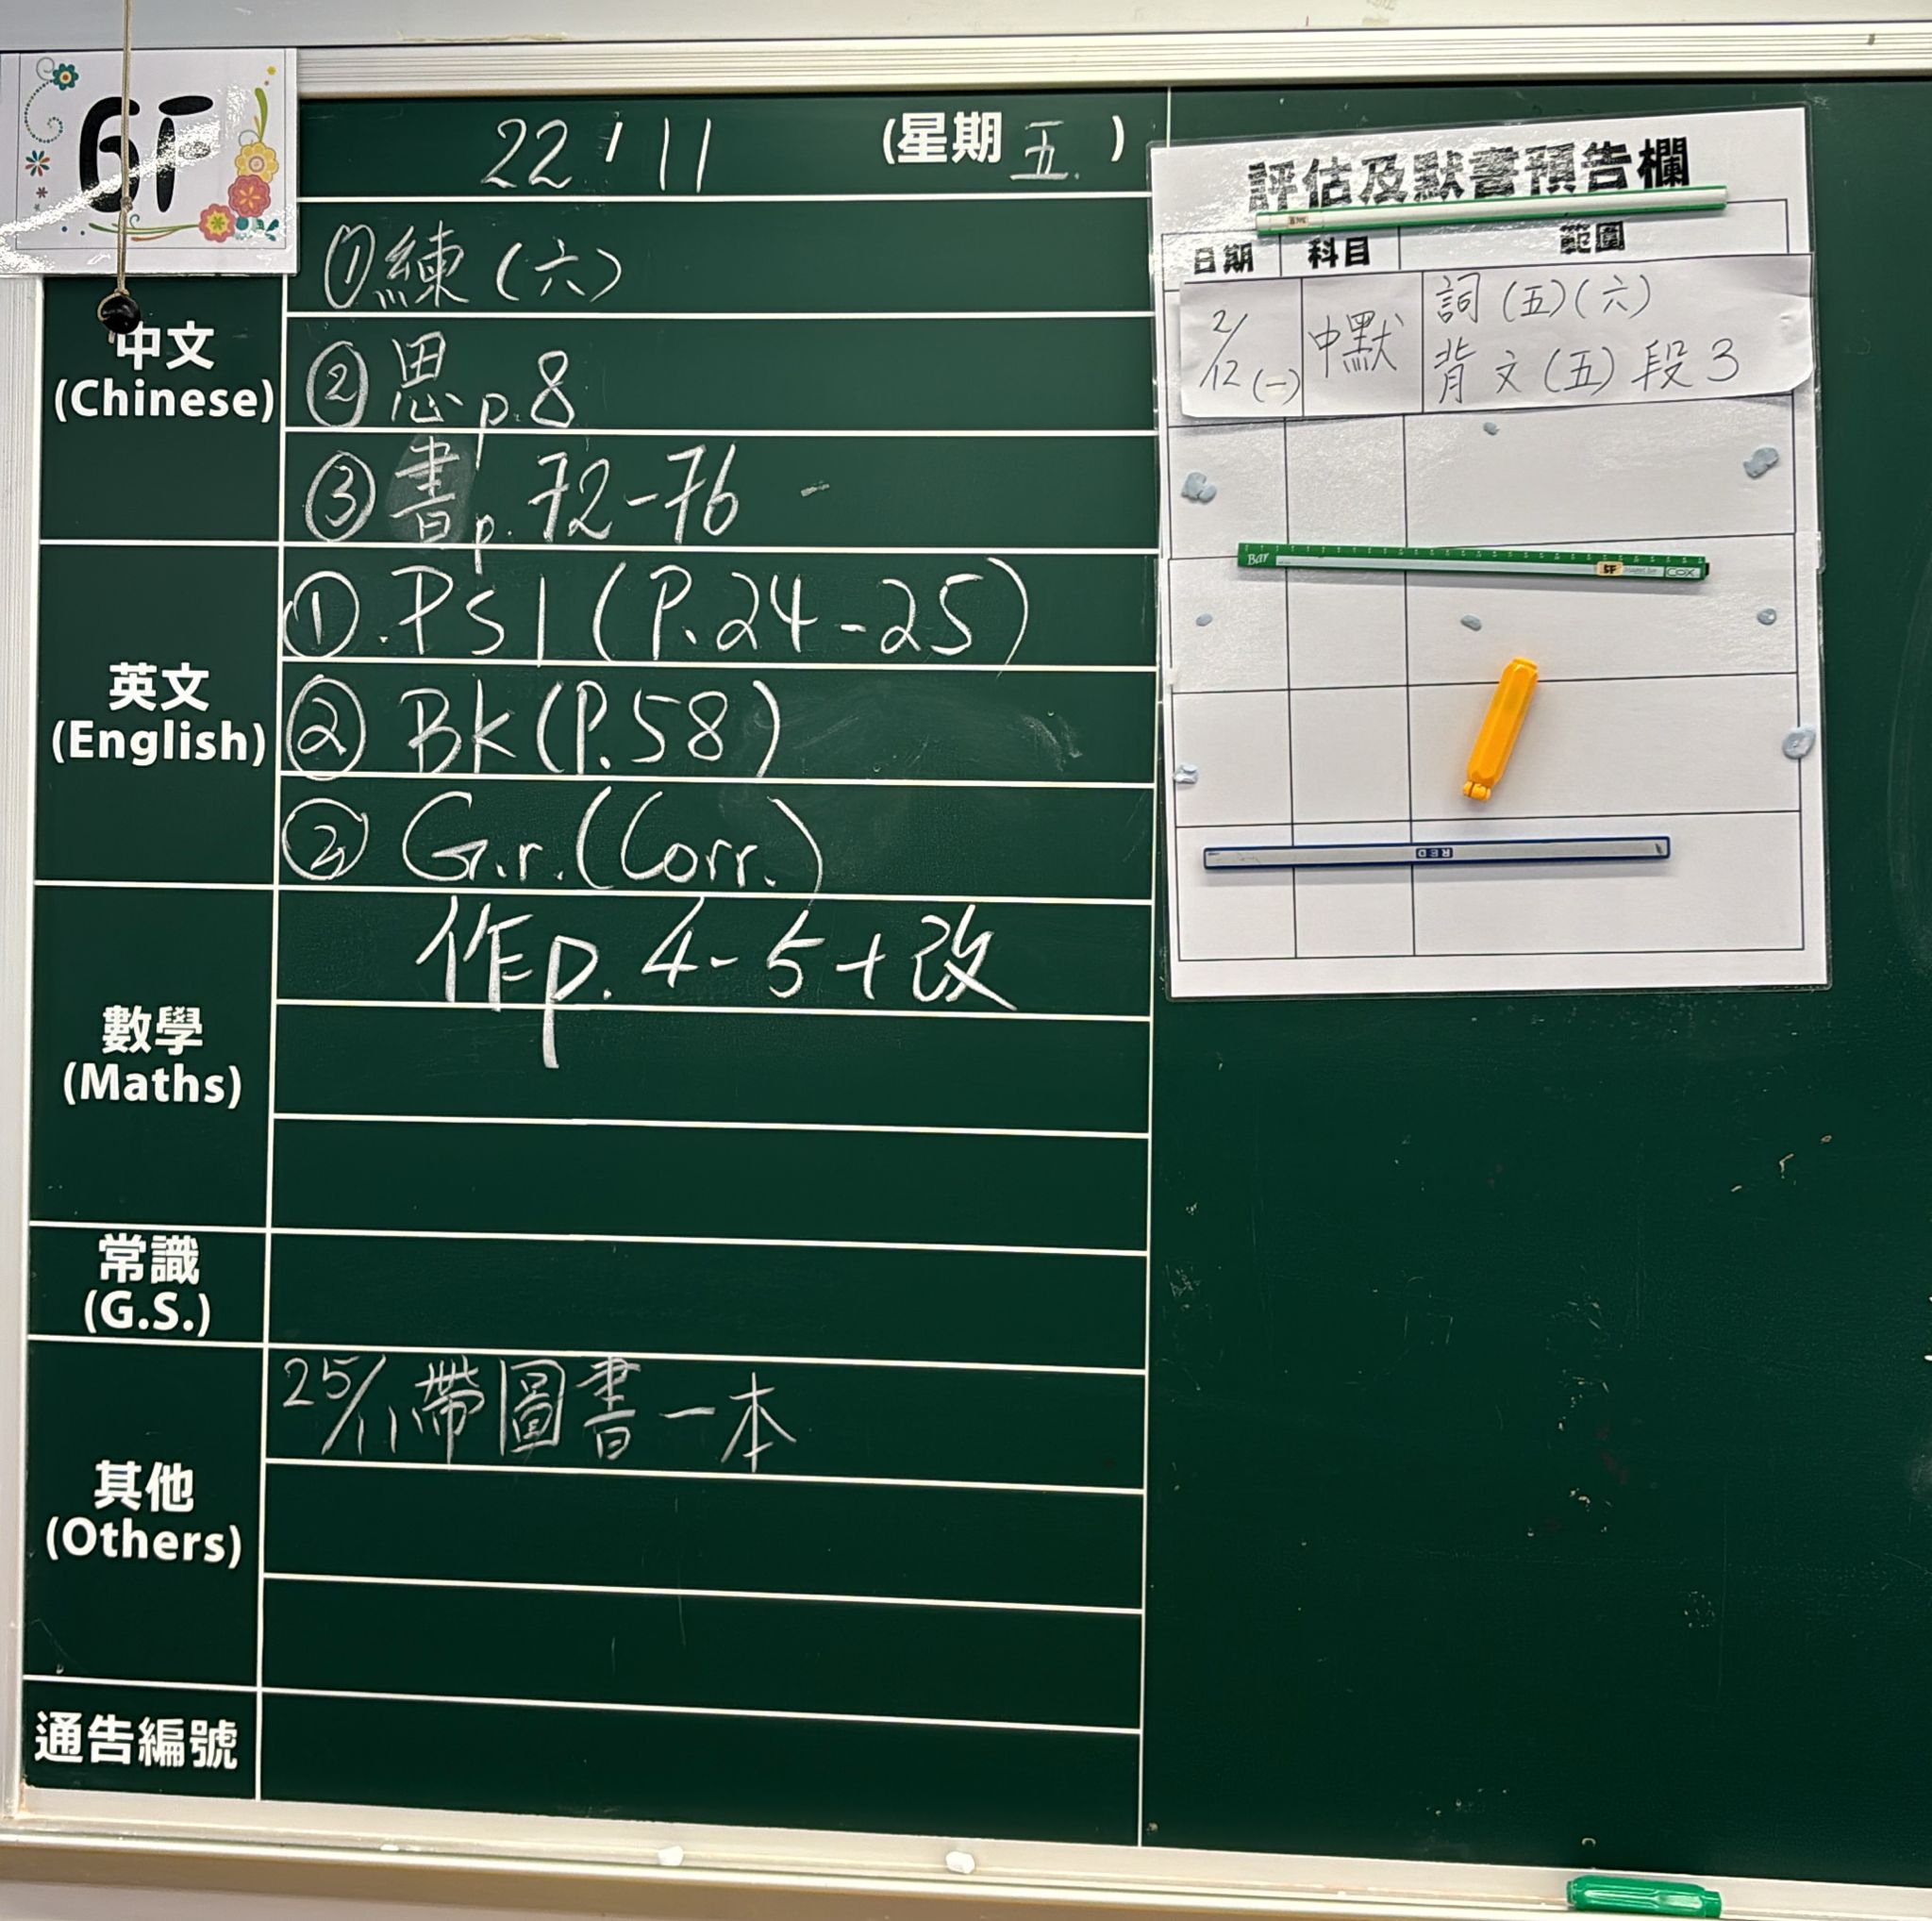 6F
22 / 11 (星期 五 )
中文
(Chinese)
①練(六)
②思p.8
③書p.72-76
英文
(English)
①.PS1(P.24-25)
②BK(P.58)
②G.r.(Corr.)
數學
(Maths)
作p.4-5+改
常識
(G.S.)
其他
(Others)
25/11帶圖書一本
通告編號
評估及默書預告欄
日期 科目 範圍
2/12(一) 中默 詞(五)(六)
背文(五)段3
Bar 5F COX
RED